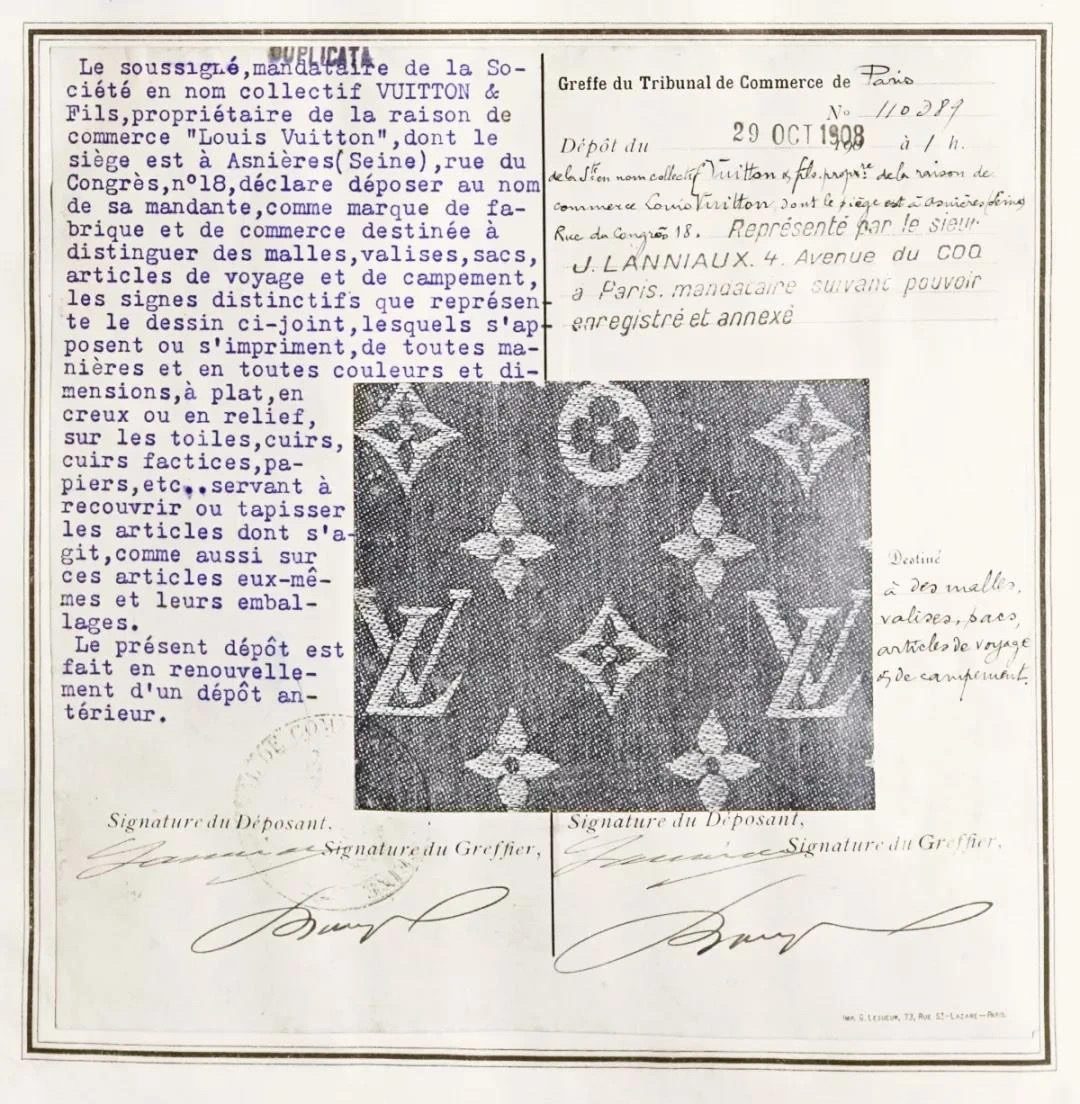 DUPLICATA
Le soussigné,mandataire de la So-
ciété en nom collectif VUITTON &
Fils,propriétaire de la raison de
commerce "Louis Vuitton",dont le
siège est à Asnières(Seine),rue du
Congrès,n°18,déclare déposer au nom
de sa mandante,comme marque de fa-
brique et de commerce destinée à
distinguer des malles,valises,sacs,
articles de voyage et de campement,
les signes distinctifs que représen-
te le dessin ci-joint,lesquels s'ap-
posent ou s'impriment,de toutes ma-
nières et en toutes couleurs et di-
mensions,à plat,en
creux ou en relief,
sur les toiles,cuirs,
cuirs factices,pa-
piers,etc..servant à
recouvrir ou tapisser
les articles dont s'a-
git,comme aussi sur
ces articles eux-mê-
mes et leurs embal-
lages.
Le présent dépôt est
fait en renouvelle-
ment d'un dépôt an-
térieur.
Signature du Déposant,
Signature du Greffier,
Greffe du Tribunal de Commerce de Paris
N° 110389
Dépôt du 29 OCT 1908 à 1 h.
de la Sté en nom collectif Vuitton & fils. propre de la raison de
commerce Louis Vuitton, dont le siège est à Asnières (Seine)
Rue du Congrès 18. Représenté par le sieur
J. LANNIAUX. 4. Avenue du COQ
à Paris. mandataire suivant pouvoir
enregistré et annexé
LV LV
Destiné
à des malles,
valises, sacs,
articles de voyage
& de campement.
Signature du Déposant,
Signature du Greffier,
IMP. G. LESUEUR, 73, RUE ST-LAZARE—PARIS